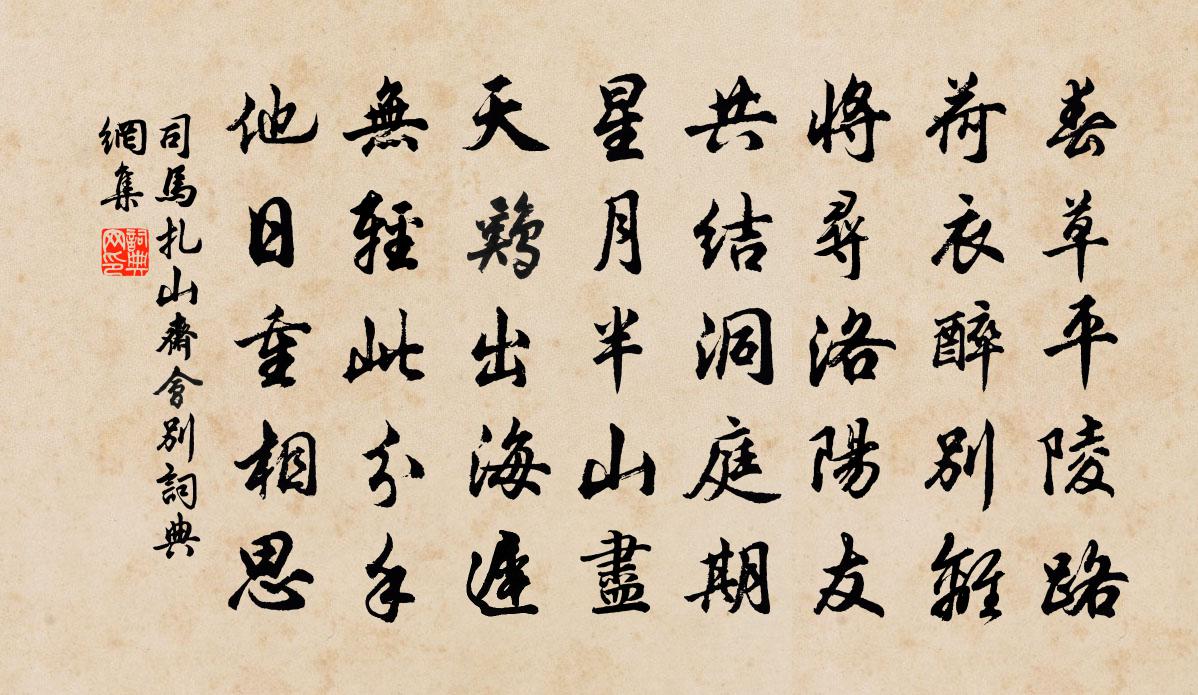 春草平陵路
荷衣醉別離
將尋洛陽友
共結洞庭期
星月半山盡
天鷄出海遲
無輕此分手
他日重相思
司馬扎山齋會別詞典
網集
詞典网印